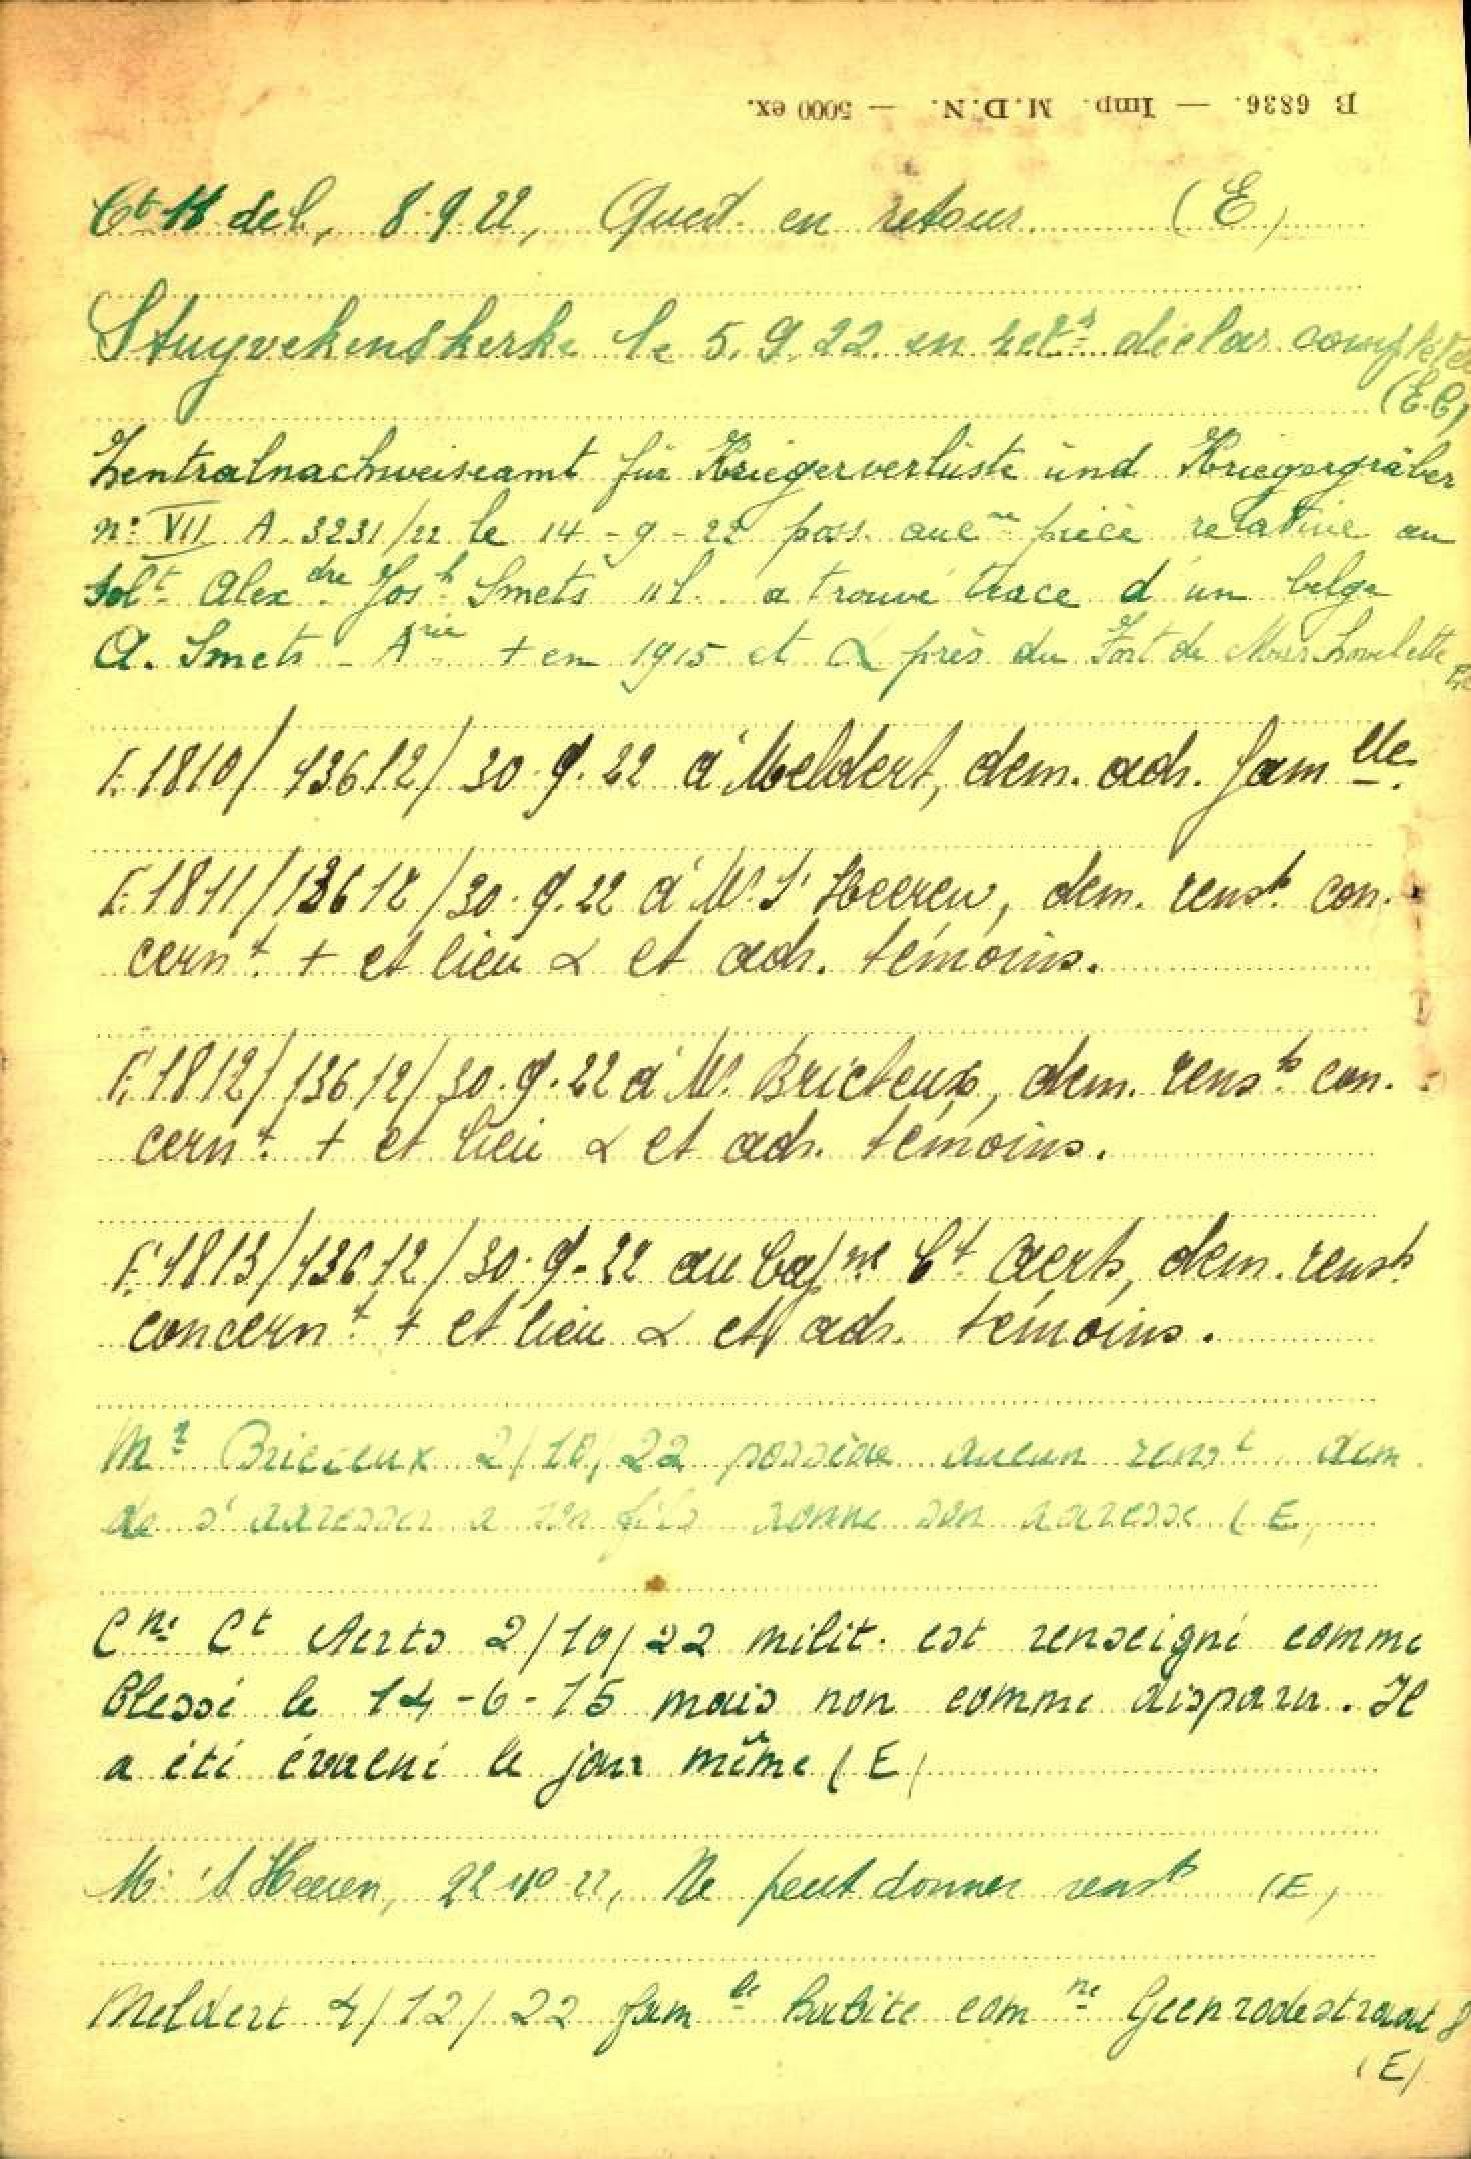 B 6836. — Imp. M.D.N. — 5000 ex.
Ct 11 del, 8.9.22, Quest. en retour (E)
Stuyvekenskerke le 5.9.22 en retr déclar complétée
(E.C)
Zentralnachweiseamt für Kriegerverlüste und Kriegergräber
n: VII A. 3231/22 le 14-9-22 poss. aucne pièce relative au
solt Alexdre Josh Smets 11l. a trouvé trace d'un belge
A. Smets - Arie + en 1915 et α près du Fort de Marchovelette
F.1810/13612/30.9.22 à Meldert, dem. adr. famlle.
F.1811/13612/30.9.22 à Mr. t'Heeren, dem. rensts con-
cernt + et lieu α et adr. témoins.
F.1812/13612/30.9.22 à Mr. Bricteux, dem. rensts con-
cernt + et lieu α et adr. témoins.
F.1813/13612/30.9.22 au Capne Ct Aerts, dem. rensts
concernt + et lieu α et adr. témoins.
Mr Bricteux 2/10/22 possède aucun renst dem
de s'adresser a son fils donne son adresse (E)
Cne Ct Aerts 2/10/22 milit. est renseigné comme
blessé le 14-6-15 mais non comme disparu. Il
a été évacué le jour même (E)
Mr 't Heeren, 22.10.22, Ne peut donner rensts (E)
Meldert 4/12/22 famle habite comne Geenrodestraat 8
(E)